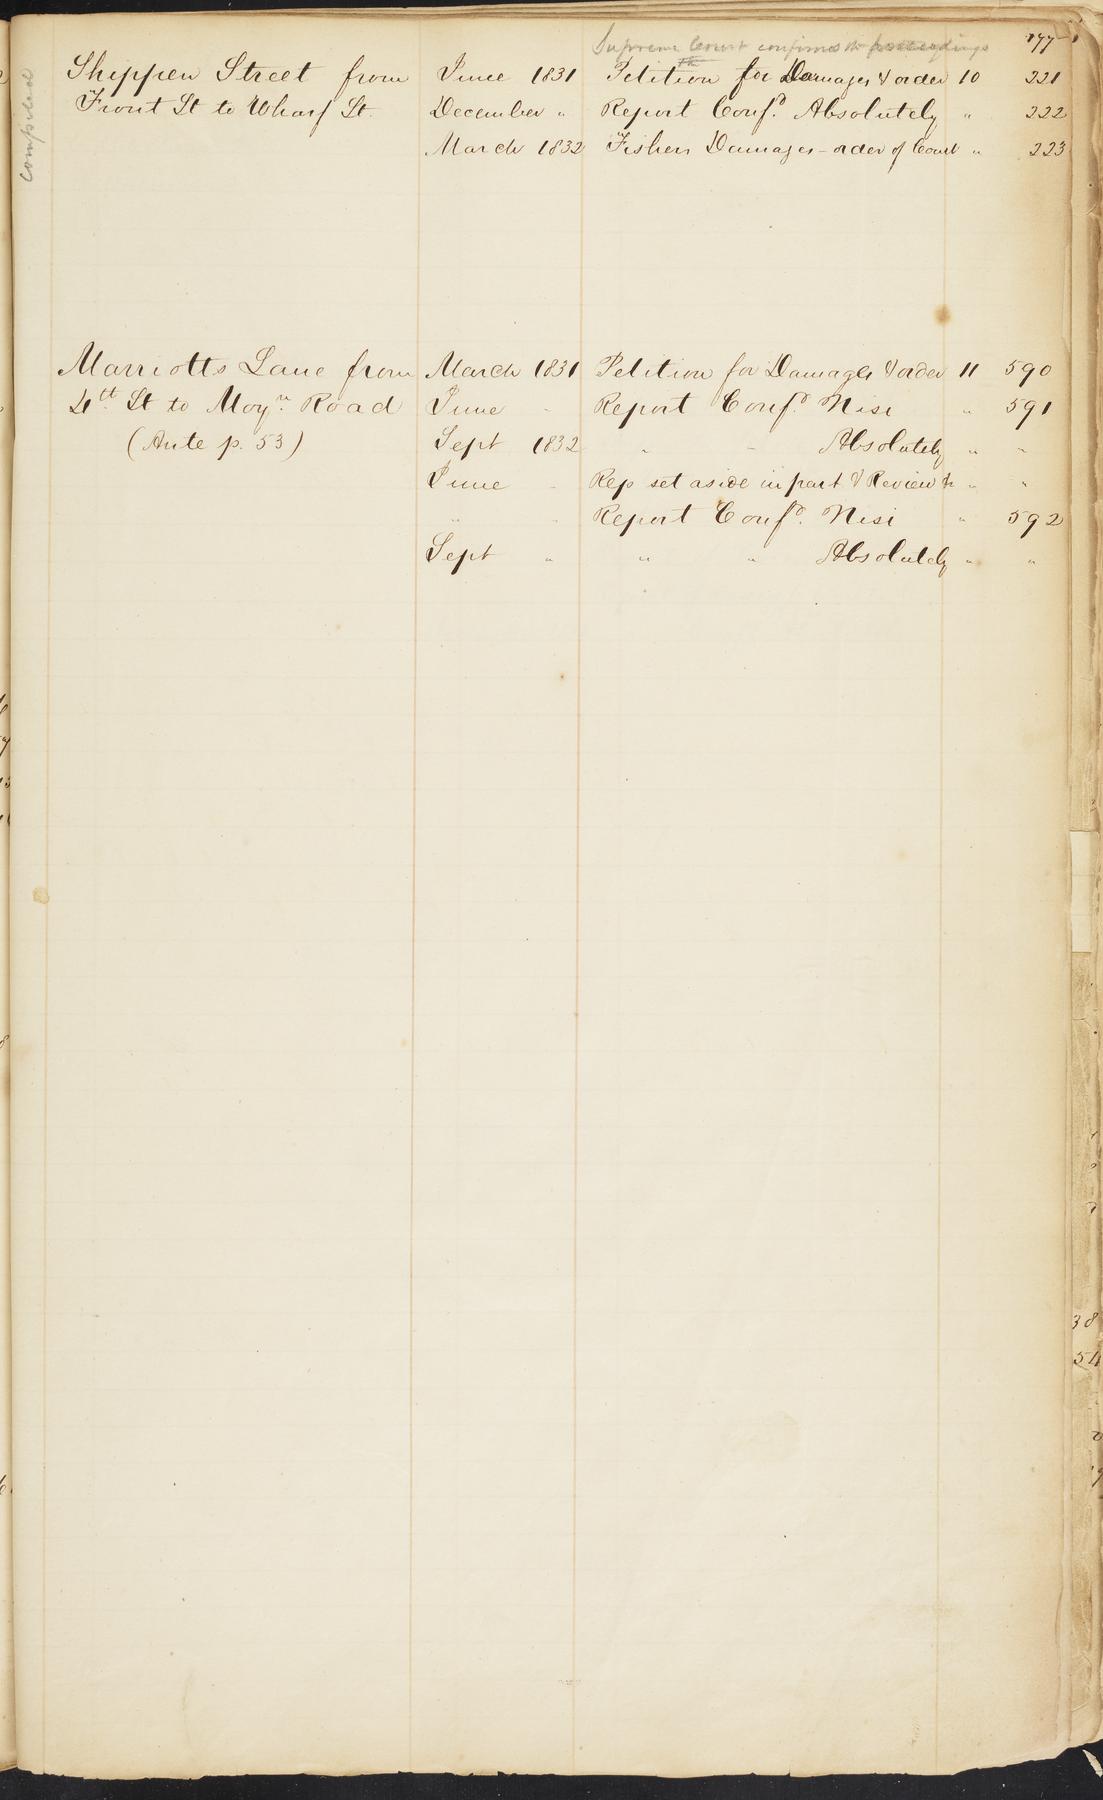 Supreme Court confirms the proceedings 177
Shippen Street from June 1831 Petition for Damages & order 10 221
Front St to Wharf St. December " Report Confd. Absolutely " 222
March 1832 Fishers Damages - order of Court " 223
compared
Marriotts Lane from March 1831 Petition for Damages & order 11 590
4th St to Moyn. Road June " Report Confd. Nisi " 591
(Ante p. 53) Sept 1832 " " Absolutely " "
June " Rep set aside in part & Review &c " "
" " Report Confd. Nisi " 592
Sept " " " Absolutely " "
38
54